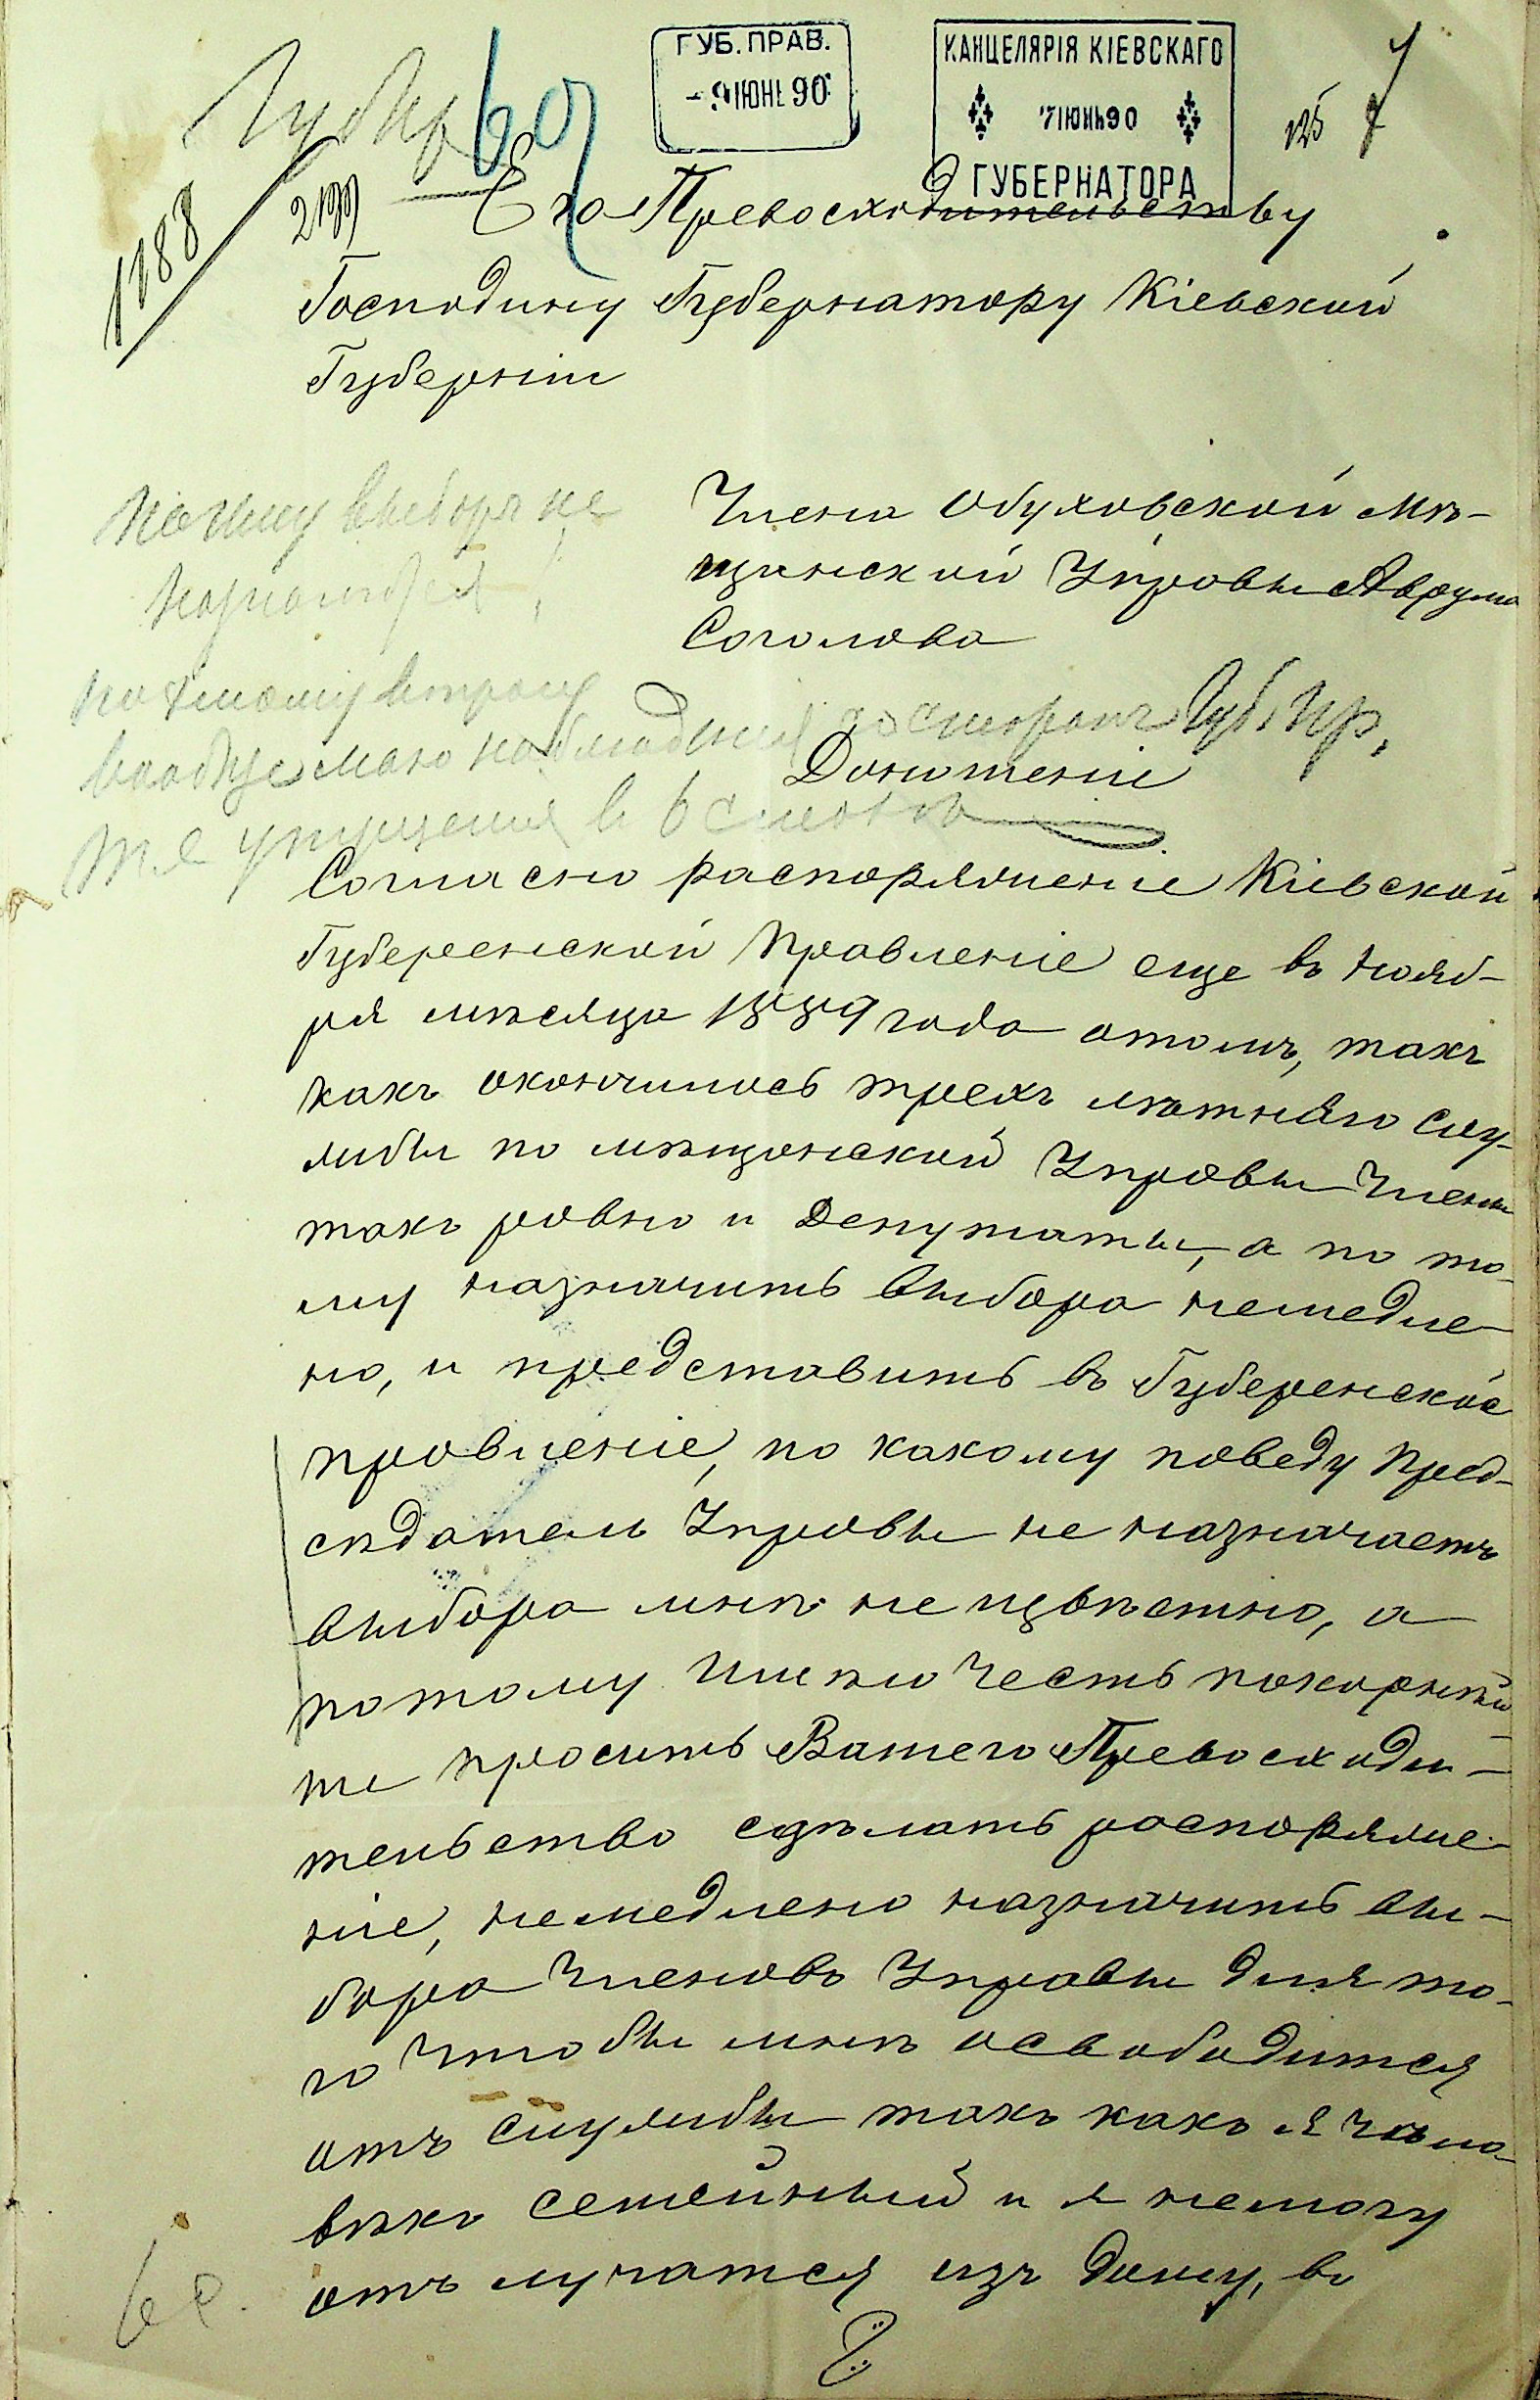 ГУБ. ПРАВ.
9 ІЮНЬ 90
КАНЦЕЛЯРІЯ КІЕВСКАГО
7 ІЮНЬ 90
ГУБЕРНАТОРА
1188
Его Превосходительству
Господину Губернатору Кіевской
Губерніи
Члена Обуховской мѣ-
щанской Управы Аврума
Соголова
почему выборы не
по этому
вообще мало наблюденія со стороны Губ. Пр.
упущенія
Доношеніе
Согласно распоряженіе Кіевской
Губеренской Правленіе еще въ нояб-
ря мѣсяца 1889 года отомъ, такъ
какъ окончилось трехъ лѣтняго слу-
жбы по мѣщанской Управы Члены
такъ ровно и Депутаты, а по то-
му назначить выбора немедле-
но, и представить въ Губеренское
правленіе, по какому поведу Пред-
сѣдатель Управы не назначаетъ
выбора мнѣ не цвѣстно, а
потому Имѣю Честь покорнѣй
ше просить Вашего Превосходи-
тельство сдѣлать распоряже-
ніе, немедлено назначить вы-
бора Членовъ Управы для то-
го чтобы мнѣ освободится
отъ службы такъ какъ я чело-
вѣкъ семейный и я немогу
отъ лучатся изъ дому, во